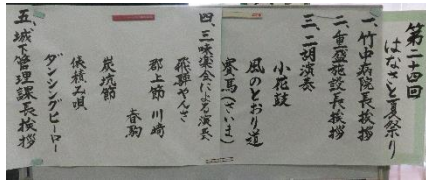 第二十四回
はなさと夏祭り
一、竹中病院長挨拶
二、重盛施設長挨拶
三、二胡演奏
小花鼓
風のとおり道
賽馬(さいま)
四、三味楽会による演奏
飛騨やんさ
郡上節 川崎
春駒
炭坑節
俵積み唄
ダンシングヒーロー
五、城下管理課長挨拶